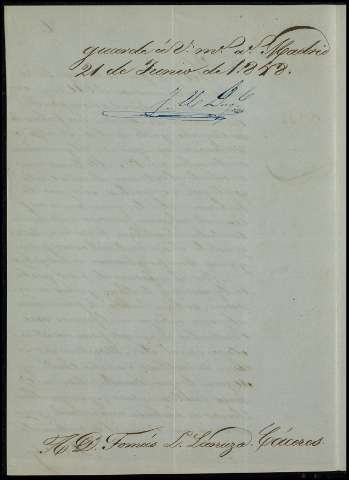 guarde á V. m.s a.s Madrid
21 de Junio de 1.858.
A D. Tomás L. Lanuza. Cáceres.